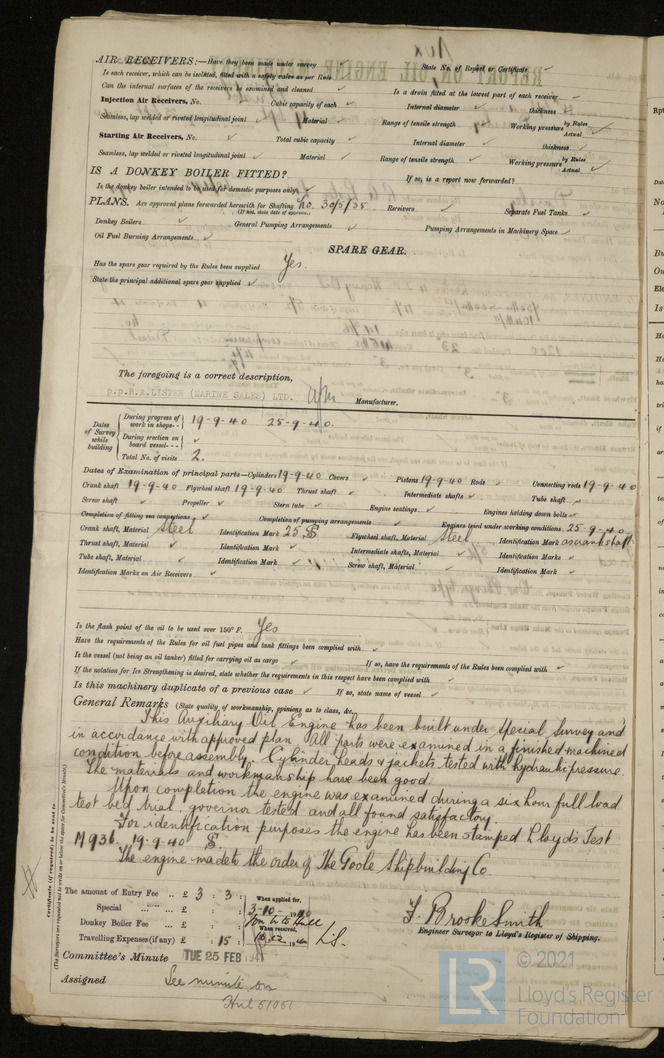 AIR RECEIVERS:—Have they been made under survey ✓ State No. of Report or Certificate ✓
Is each receiver, which can be isolated, fitted with a safety valve as per Rule ✓
Can the internal surfaces of the receivers be examined and cleaned ✓ Is a drain fitted at the lowest part of each receiver ✓
Injection Air Receivers, No. Cubic capacity of each ✓ Internal diameter ✓ thickness ✓
Seamless, lap welded or riveted longitudinal joint ✓ Material ✓ Range of tensile strength ✓ Working pressure by Rules Actual ✓
Starting Air Receivers, No. ✓ Total cubic capacity ✓ Internal diameter ✓ thickness ✓
Seamless, lap welded or riveted longitudinal joint ✓ Material ✓ Range of tensile strength ✓ Working pressure by Rules Actual ✓
IS A DONKEY BOILER FITTED? ✓ If so, is a report now forwarded? ✓
Is the donkey boiler intended to be used for domestic purposes only ✓
PLANS. Are approved plans forwarded herewith for Shafting No. 30/5/35 Receivers ✓ Separate Fuel Tanks ✓
(If not, state date of approval)
Donkey Boilers ✓ General Pumping Arrangements ✓ Pumping Arrangements in Machinery Space ✓
Oil Fuel Burning Arrangements ✓
SPARE GEAR.
Has the spare gear required by the Rules been supplied Yes.
State the principal additional spare gear supplied ✓
The foregoing is a correct description,
p.p.R.A.LISTER (MARINE SALES) LTD. Manufacturer.
Dates of Survey while building
During progress of work in shops - - 19-9-40 25-9-40.
During erection on board vessel - - - ✓
Total No. of visits 2.
Dates of Examination of principal parts—Cylinders 19-9-40 Covers ✓ Pistons 19-9-40 Rods ✓ Connecting rods 19-9-40
Crank shaft 19-9-40 Flywheel shaft 19-9-40 Thrust shaft ✓ Intermediate shafts ✓ Tube shaft ✓
Screw shaft ✓ Propeller ✓ Stern tube ✓ Engine seatings ✓ Engines holding down bolts ✓
Completion of fitting sea connections ✓ Completion of pumping arrangements ✓ Engines tried under working conditions 25-9-40
Crank shaft, Material Steel Identification Mark 25 S Flywheel shaft, Material Steel Identification Mark as crankshaft.
Thrust shaft, Material ✓ Identification Mark ✓ Intermediate shafts, Material ✓ Identification Marks ✓
Tube shaft, Material ✓ Identification Mark ✓ Screw shaft, Material ✓ Identification Mark ✓
Identification Marks on Air Receivers ✓
Is the flash point of the oil to be used over 150° F. Yes
Have the requirements of the Rules for oil fuel pipes and tank fittings been complied with ✓
Is the vessel (not being an oil tanker) fitted for carrying oil as cargo ✓ If so, have the requirements of the Rules been complied with ✓
If the notation for Ice Strengthening is desired, state whether the requirements in this respect have been complied with ✓
Is this machinery duplicate of a previous case ✓ If so, state name of vessel ✓
General Remarks (State quality of workmanship, opinions as to class, &c.
This Auxiliary Oil Engine has been built under Special Survey and
in accordance with approved plan. All parts were examined in a finished machined
condition before assembly. Cylinder, heads & jackets tested with hydraulic pressure.
The materials and workmanship have been good.
Upon completion the engine was examined during a six hour full load
test bed trial, governor tested and all found satisfactory.
For identification purposes the engine has been stamped Lloyd's Test
M936. 19-9-40 S.
The engine made to the order of The Goole Shipbuilding Co
Certificate (if required) to be sent to
(The Surveyors are requested not to write on or below the space for Committee's Minute.)
The amount of Entry Fee .. £ 3 : 3 :
Special £ : :
Donkey Boiler Fee .. £ : :
Travelling Expenses (if any) £ : 15 :
When applied for, 3-10-1940
When received,
F Brooke Smith
Engineer Surveyor to Lloyd's Register of Shipping.
Committee's Minute TUE 25 FEB 194
Assigned See minute on
Hull 51051
© 2021
LR
Lloyd's Register
Foundation